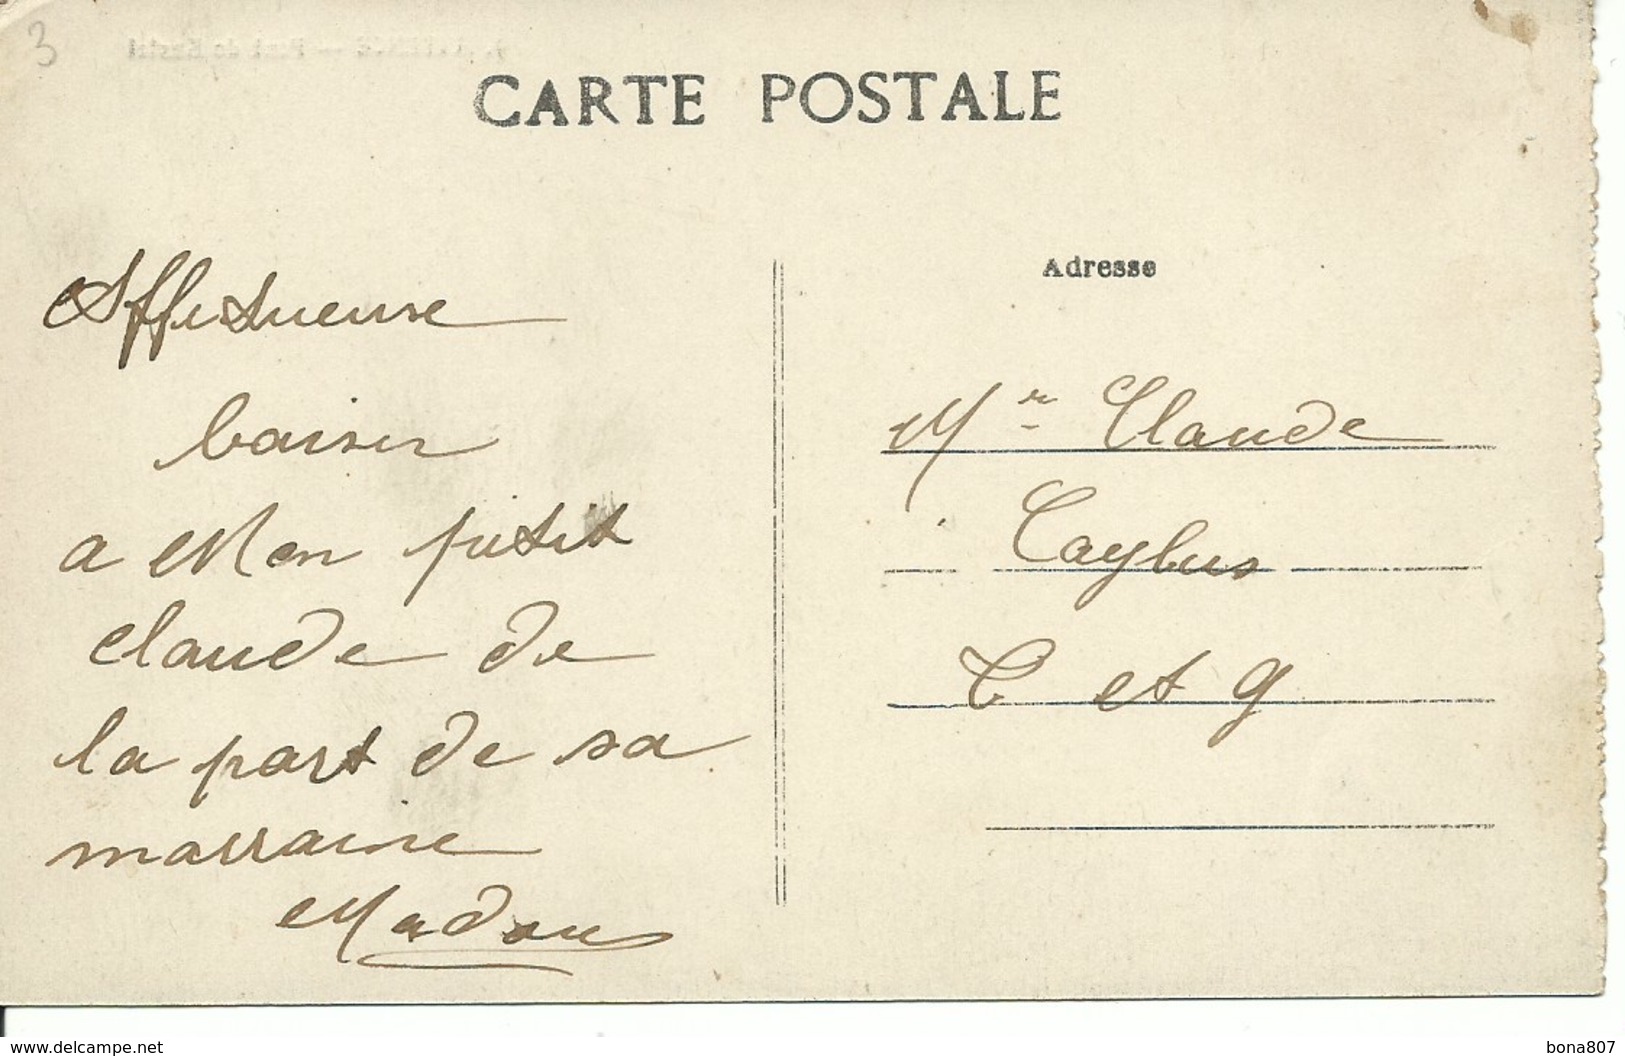 3
CARTE POSTALE
Affectueuse
baiser
a Mon petit
claude de
la part de sa
marraine
Madou
Adresse
Mr Claude
Caylus
C et g
www.delcampe.net
bona807